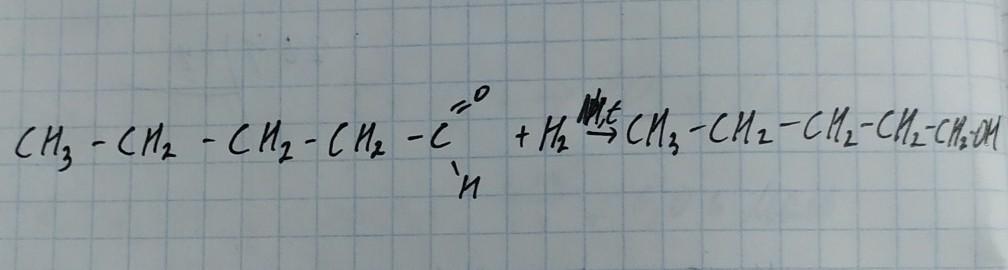 CH₃ - CH₂ - CH₂ - CH₂ - C =O \H + H₂ → CH₃ - CH₂ - CH₂ - CH₂ - CH₂-OH